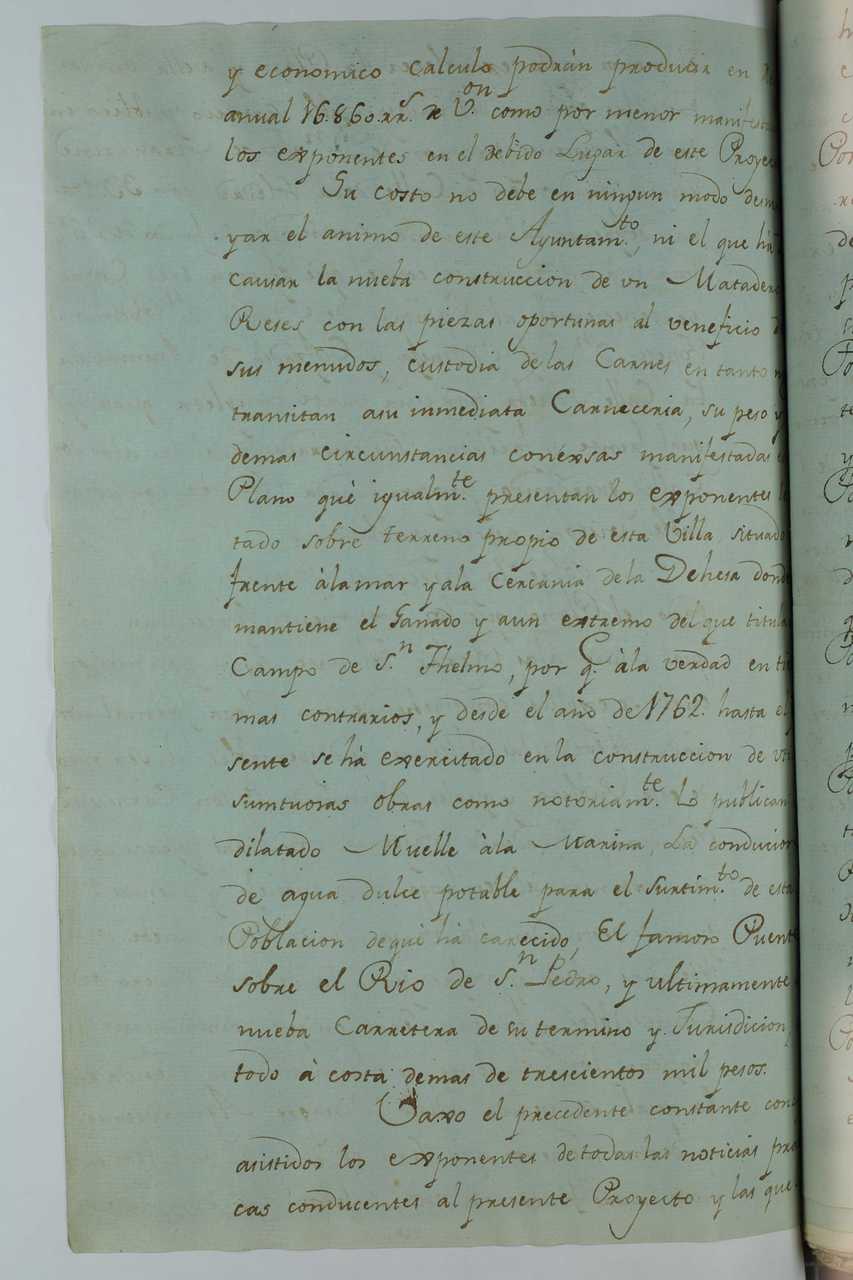 y economico Calculo podrán producir en
anual 16.860. rrs. de Von. como por menor manifes
los exponentes en el debido Lugar de este Proyec
Su costo no debe en ningun modo desma
yar el animo de este Ayuntamto., ni el que há
causar la nueba construccion de un Matadero
Reses con las piezas oportunas al veneficio d
sus menudos, custodia de las Carnes en tanto
transitan asu inmediata Carneceria, su peso y
demas circunstancias conexsas manifestadas
Plano que igualmte. presentan los exponentes
tado sobre terreno propio de esta Villa situado
frente àla mar y ala Cercania de la Dehesa dond
mantiene el Ganado y aun extremo del que titula
Campo de Sn. Thelmo, por q. àla verdad en ti
mas contrarios, y desde el año de 1762. hasta el
sente se há exercitado en la construccion de
sumtuosas obras como notoriamte. Lo publican
dilatado Muelle àla Marina, La conducion
de agua dulce potable para el surtimto. de esta
Poblacion de que há carecido, El famoso Puent
sobre el Rio de Sn. Pedro, y ultimamente
nueba Carretera de su termino y Jurisdicion
todo á costa demas de trescientos mil pesos.
Baxo el precedente constante con
asistidos los exponentes de todas las noticias pra
cas conducentes al presente Proyecto y las que